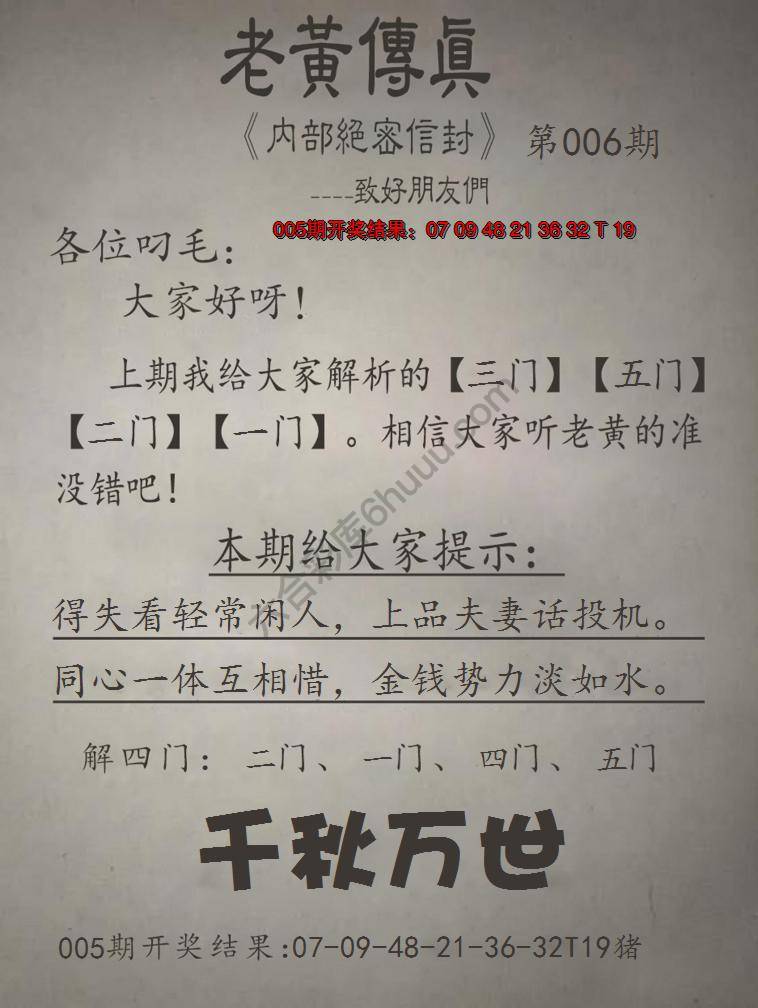 老黃傳眞
《內部絕密信封》 第006期
----致好朋友們
005期开奖结果：07 09 48 21 36 32 T 19
各位叼毛：
大家好呀！
上期我给大家解析的【三门】【五门】
【二门】【一门】。相信大家听老黄的准
没错吧！
本期给大家提示：
得失看轻常闲人，上品夫妻话投机。
同心一体互相惜，金钱势力淡如水。
解四门：二门、一门、四门、五门
千秋万世
005期开奖结果:07-09-48-21-36-32T19猪
六合彩库6huuu.com